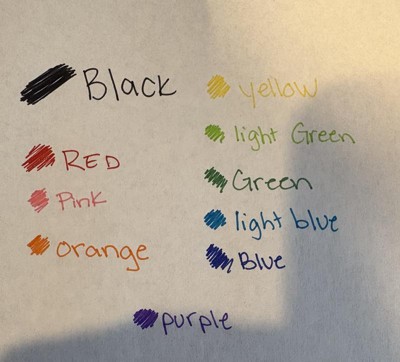 Black
RED
Pink
orange
yellow
light Green
Green
light blue
Blue
purple